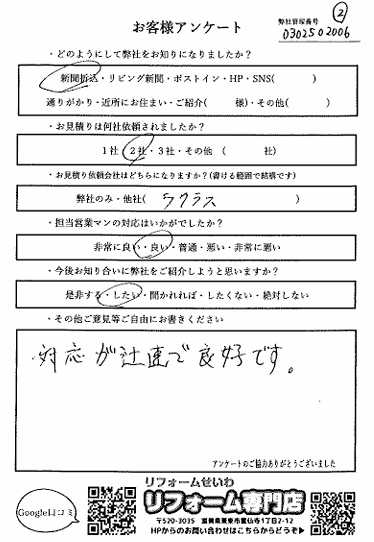 お客様アンケート
弊社管理番号 ②
0302502006
・どのようにして弊社をお知りになりましたか？
新聞折込・リビング新聞・ポストイン・HP・SNS( )
通りがかり・近所にお住まい・ご紹介( 様)・その他( )
・お見積りは何社依頼されましたか？
1社・2社・3社・その他 ( 社)
・お見積り依頼会社はどちらになりますか？(書ける範囲で結構です)
弊社のみ・他社( ラクラス )
・担当営業マンの対応はいかがでしたか？
非常に良い・良い・普通・悪い・非常に悪い
・今後お知り合いに弊社をご紹介しようと思いますか？
是非する・したい・聞かれれば・したくない・絶対しない
・その他ご意見等ご自由にお書きください
対応が迅速で良好です。
アンケートのご協力ありがとうございました
Google口コミ
リフォームせいわ
リフォーム専門店
〒520-3035 滋賀県栗東市霊仙寺1丁目2-12
HPからのお問い合わせはこちらからどうぞ▶